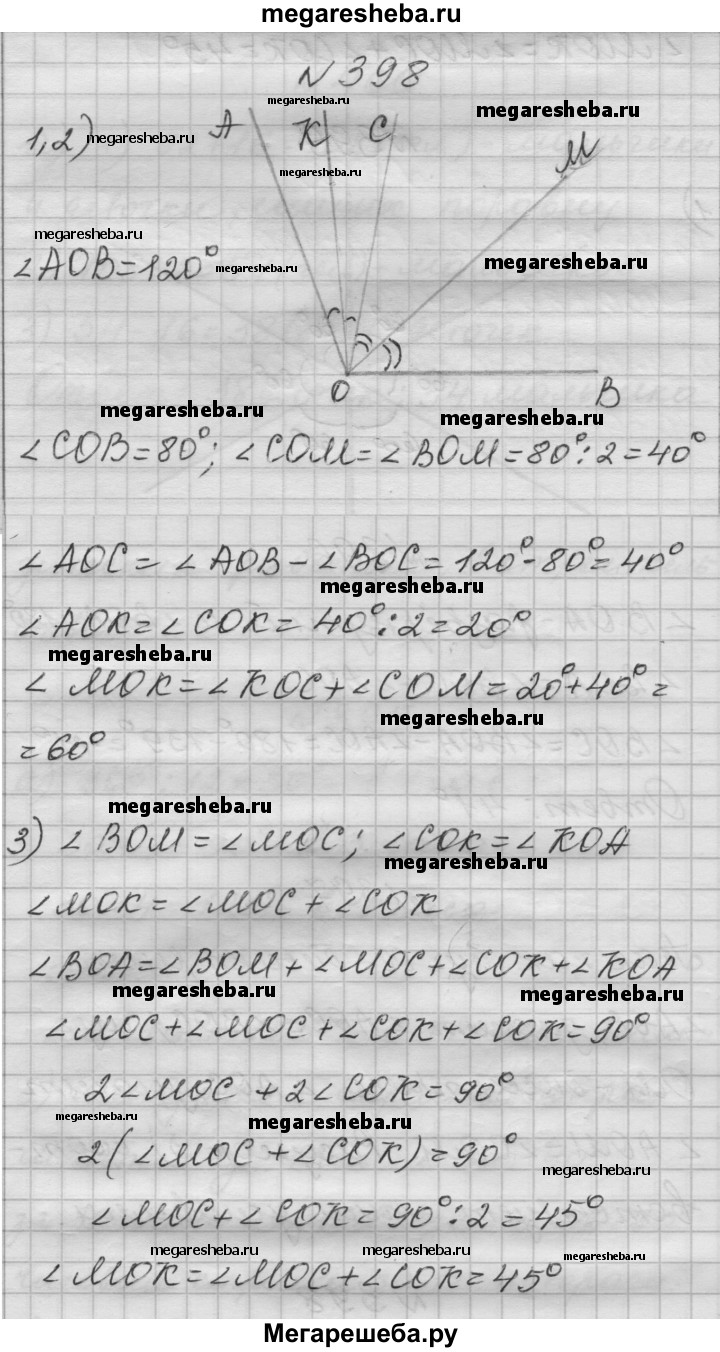 megaresheba.ru
N 398
megaresheba.ru
megaresheba.ru
1,2) megaresheba.ru
A K C M
megaresheba.ru
megaresheba.ru
∠AOB=120° megaresheba.ru
megaresheba.ru
O B
megaresheba.ru
megaresheba.ru
∠COB=80°; ∠COM=∠BOM=80°:2=40°
∠AOC=∠AOB-∠BOC=120°-80°=40°
megaresheba.ru
∠AOK=∠COK=40°:2=20°
megaresheba.ru
∠MOK=∠KOC+∠COM=20°+40°=
megaresheba.ru
=60°
megaresheba.ru
3) ∠BOM=∠MOC; ∠COK=∠KOA
megaresheba.ru
∠MOK=∠MOC+∠COK
∠BOA=∠BOM+∠MOC+∠COK+∠KOA
megaresheba.ru
megaresheba.ru
∠MOC+∠MOC+∠COK+∠COK=90°
2∠MOC+2∠COK=90°
megaresheba.ru
megaresheba.ru
2(∠MOC+∠COK)=90°
megaresheba.ru
∠MOC+∠COK=90°:2=45°
megaresheba.ru
megaresheba.ru
megaresheba.ru
∠MOK=∠MOC+∠COK=45°
Мегарешеба.ру